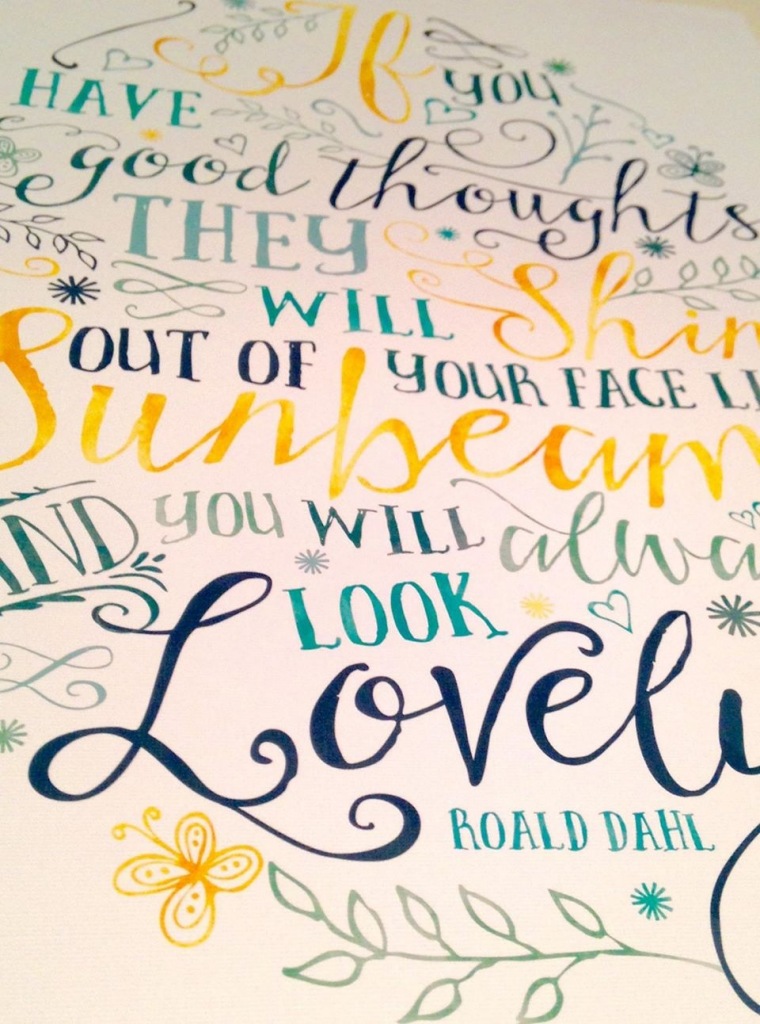 If YOU
HAVE
good thoughts
THEY
WILL Shin
OUT OF YOUR FACE LI
Sunbeam
AND YOU WILL alwa
LOOK
Lovely
ROALD DAHL